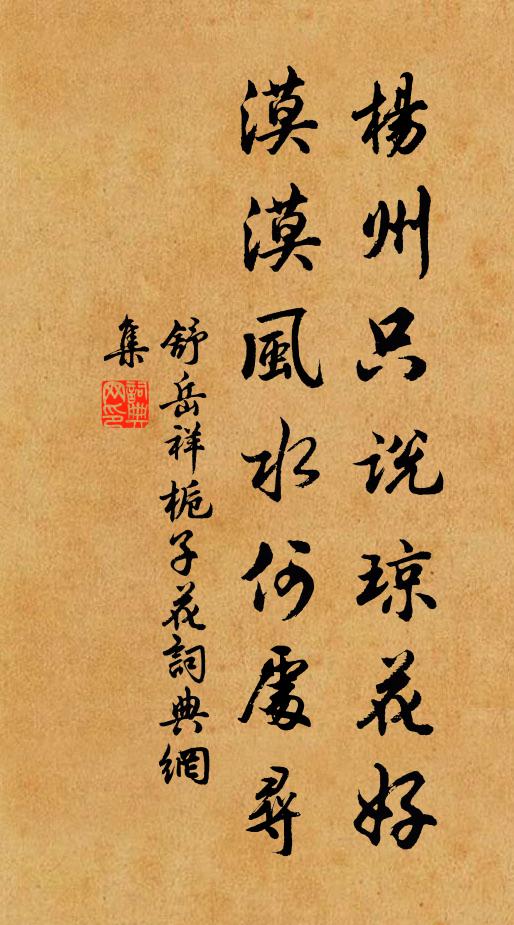 楊州只説琼花好
漠漠風水何處尋
舒岳祥栀子花詞典網
集
詞典網印